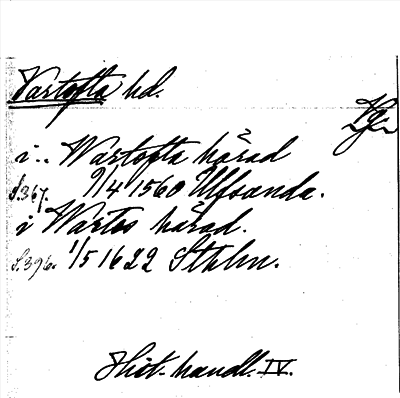 Vartofta hd.
Vg.
i.. Wartofta härad
S. 367. 9/4 1560 Ulfsunda.
i Wartos härad.
S. 396. 1/5 1622 Sthlm.
Hist. handl. IV.